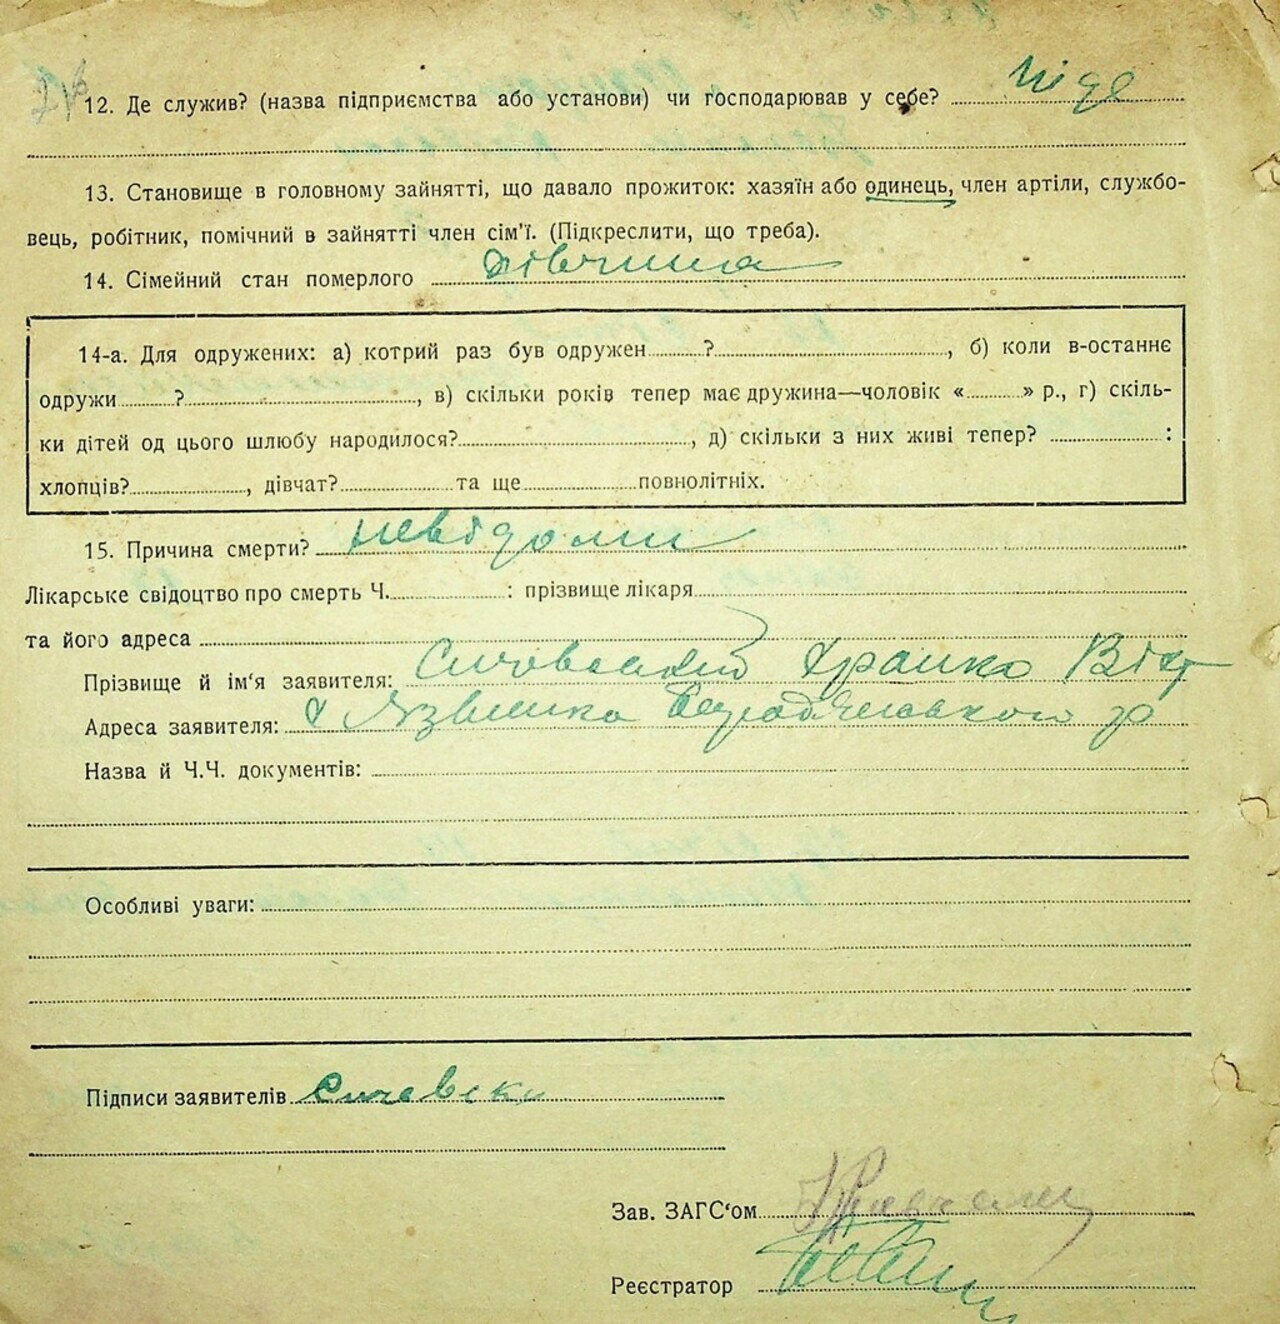 12. Де служив? (назва підприємства або установи) чи господарював у себе? ніде
13. Становище в головному зайнятті, що давало прожиток: хазяїн або одинець, член артілі, службо-
вець, робітник, помічний в зайнятті член сім'ї. (Підкреслити, що треба).
14. Сімейний стан померлого дівчина
14-а. Для одружених: а) котрий раз був одружен ? , б) коли в-останнє
одружи ? , в) скільки років тепер має дружина—чоловік « » р., г) скіль-
ки дітей од цього шлюбу народилося? , д) скільки з них живі тепер? :
хлопців? , дівчат? та ще повнолітніх.
15. Причина смерти? невідома
Лікарське свідоцтво про смерть Ч. : прізвище лікаря
та його адреса
Прізвище й ім'я заявителя: Франко Вікт
Адреса заявителя: с Язвинка
Назва й Ч.Ч. документів:
Особливі уваги:
Підписи заявителів
Зав. ЗАГС'ом
Реєстратор